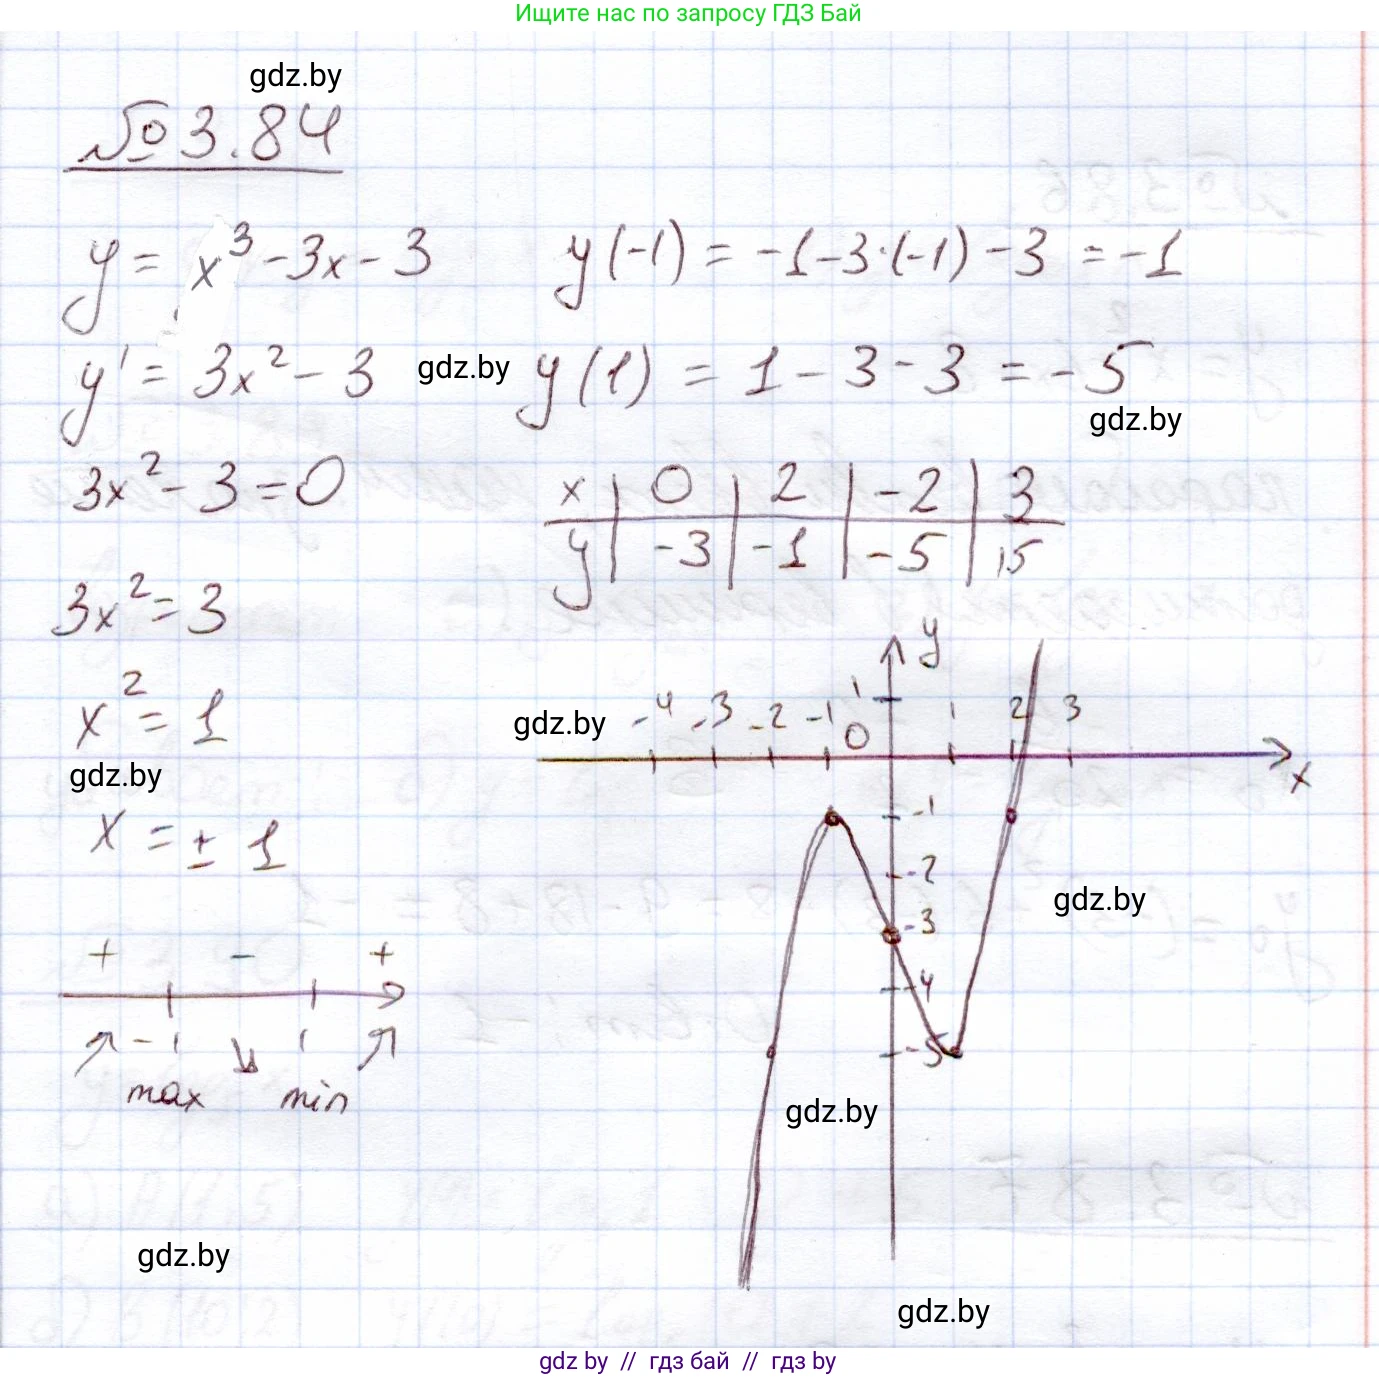 Ищите нас по запросу ГДЗ Бай
gdz.by
№3.84
y = x³ - 3x - 3
y(-1) = -1 - 3·(-1) - 3 = -1
y' = 3x² - 3
gdz.by
y(1) = 1 - 3 - 3 = -5
gdz.by
3x² - 3 = 0
x | 0 | 2 | -2 | 3
y | -3 | -1 | -5 | 15
3x² = 3
x² = 1
gdz.by
x = ± 1
+ - +
-1 1
max min
y
gdz.by
-4 -3 -2 -1 0 1 2 3
x
1
-1
-2
-3
-4
-5
gdz.by
gdz.by
gdz.by
gdz.by
gdz by // гдз бай // гдз by